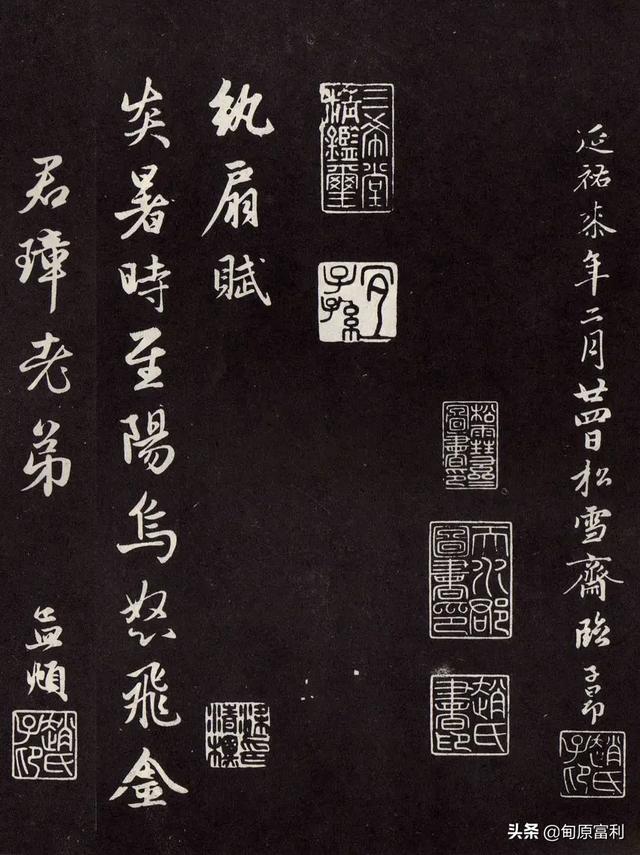 延祐柒年二月廿四日松雪齋臨子昂
趙氏子昂
松雪齋圖書印
天水郡圖書印
趙氏書印
三希堂精鑑璽
宜子孫
紈扇賦
炎暑時至陽烏怒飛金
君璋老弟
孟頫
趙氏子昂
头条 @甸原富利